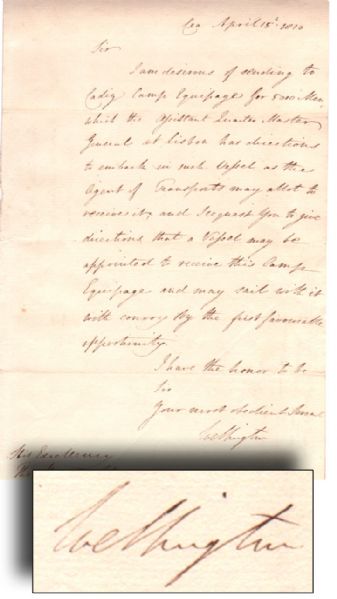 Cea April 18th. 1810
Sir
I am desirous of sending to
Cadiz Camp Equipage for 5000 Men,
which the Assistant Quarter Master
General at Lisbon has directions
to embark in such Vessel as the
Agent of Transports may allot to
receive it; and I request You to give
directions that a Vessel may be
appointed to receive this Camp
Equipage and may sail with it
with convoy By the first favourable
opportunity.
I have the honor to be
Sir
Your most obedient
Wellington
His Excellency
Wellington